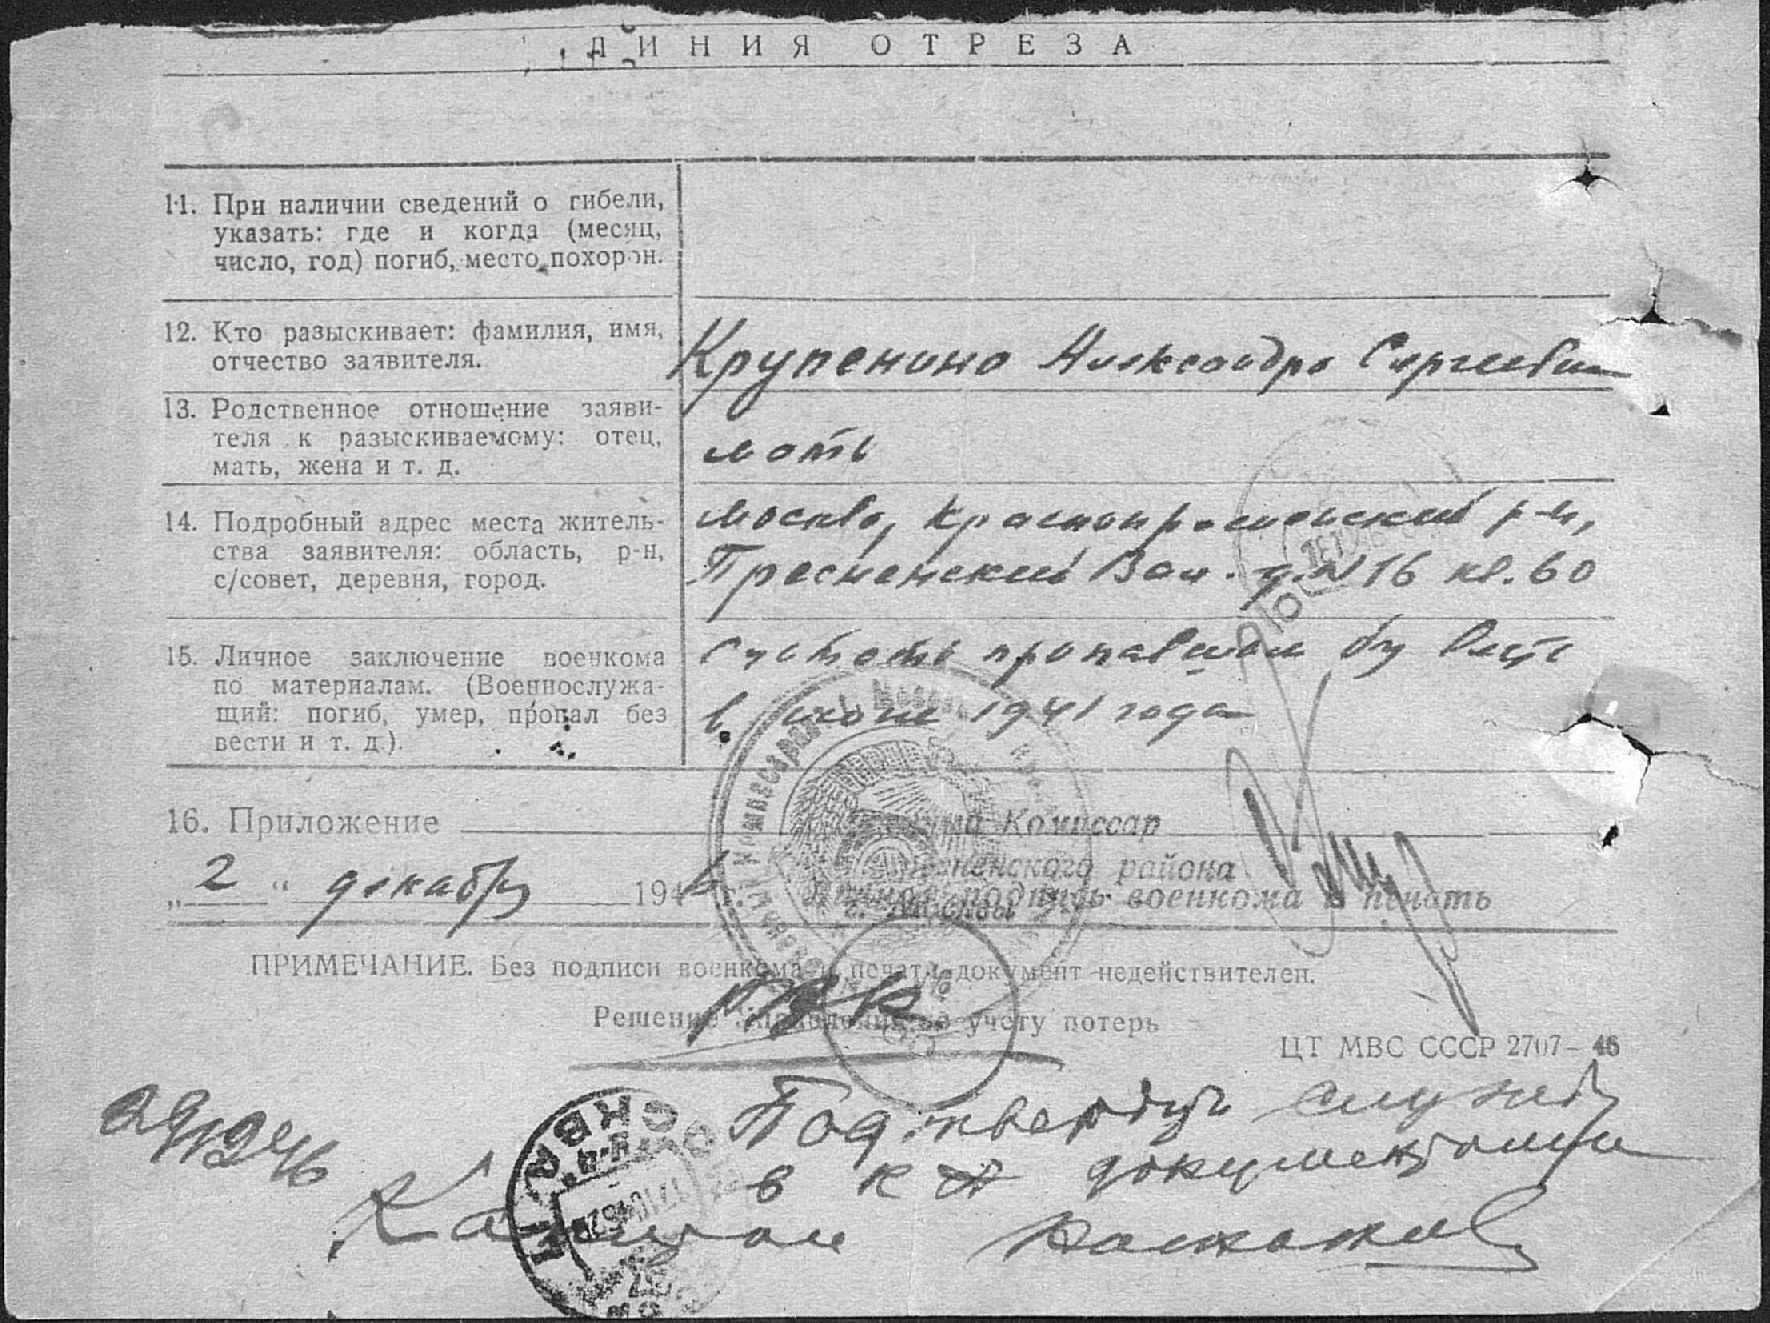 ЛИНИЯ ОТРЕЗА
11. При наличии сведений о гибели,
указать: где и когда (месяц,
число, год) погиб, место похорон.
12. Кто разыскивает: фамилия, имя,
отчество заявителя.
Крупенина Александра Сергеевна
13. Родственное отношение заяви-
теля к разыскиваемому: отец,
мать, жена и т. д.
мать
14. Подробный адрес места житель-
ства заявителя: область, р-н,
с/совет, деревня, город.
Москва, Краснопресненский р-н,
Пресненский Вал. д. N 16 кв. 60
15. Личное заключение военкома
по материалам. (Военнослужа-
щий: погиб, умер, пропал без
вести и т. д.).
считать пропавшим без вести
в 1941 года
16. Приложение
Комиссар
района
г. Москвы
„2" декабря 1946 г.
Личная подпись военкома и печать
ПРИМЕЧАНИЕ. Без подписи военкома и печати документ недействителен.
Решение Управления по учету потерь
ЦТ МВС СССР 2707—46
Подтвердит службу
в КА документами
Капитан
МОСКВА